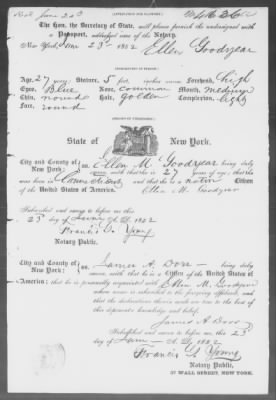 The Hon. the Secretary of State, will please furnish the undersigned with a
Passport, addressed care of the Notary.
New York, June 23rd 1882 Ellen Goodyear
Age, 27 years, Stature, 5 feet, inches Forehead, high
Eyes, Blue Nose, common Mouth, medium
Chin, round Hair, golden Complexion, light
Face, round
State of New York.
City and County of New York: ss. Ellen M. Goodyear being duly
sworn, saith that she is 27 years of age; that she
was born in and that she is a native Citizen
of the United States of America. Ellen M. Goodyear
Subscribed and sworn to before me this
23 day of June A.D. 1882
Francis S. Young
Notary Public.
City and County of New York: ss. James A. Dorr being duly
sworn, saith that he is a Citizen of the United States of
America; that he is personally acquainted with Ellen M. Goodyear
whose name is subscribed to the foregoing affidavit, and
that the declarations therein made are true to the best of
this deponent's knowledge and belief.
James A. Dorr
Subscribed and sworn to before me, this 23
day of June A.D. 1882
Francis S. Young
Notary Public,
57 WALL STREET, NEW YORK.